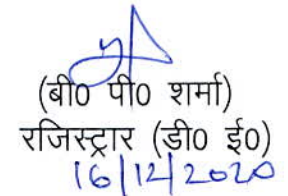 (बी0 पी0 शर्मा)
रजिस्ट्रार (डी0 ई0)
16/12/2020